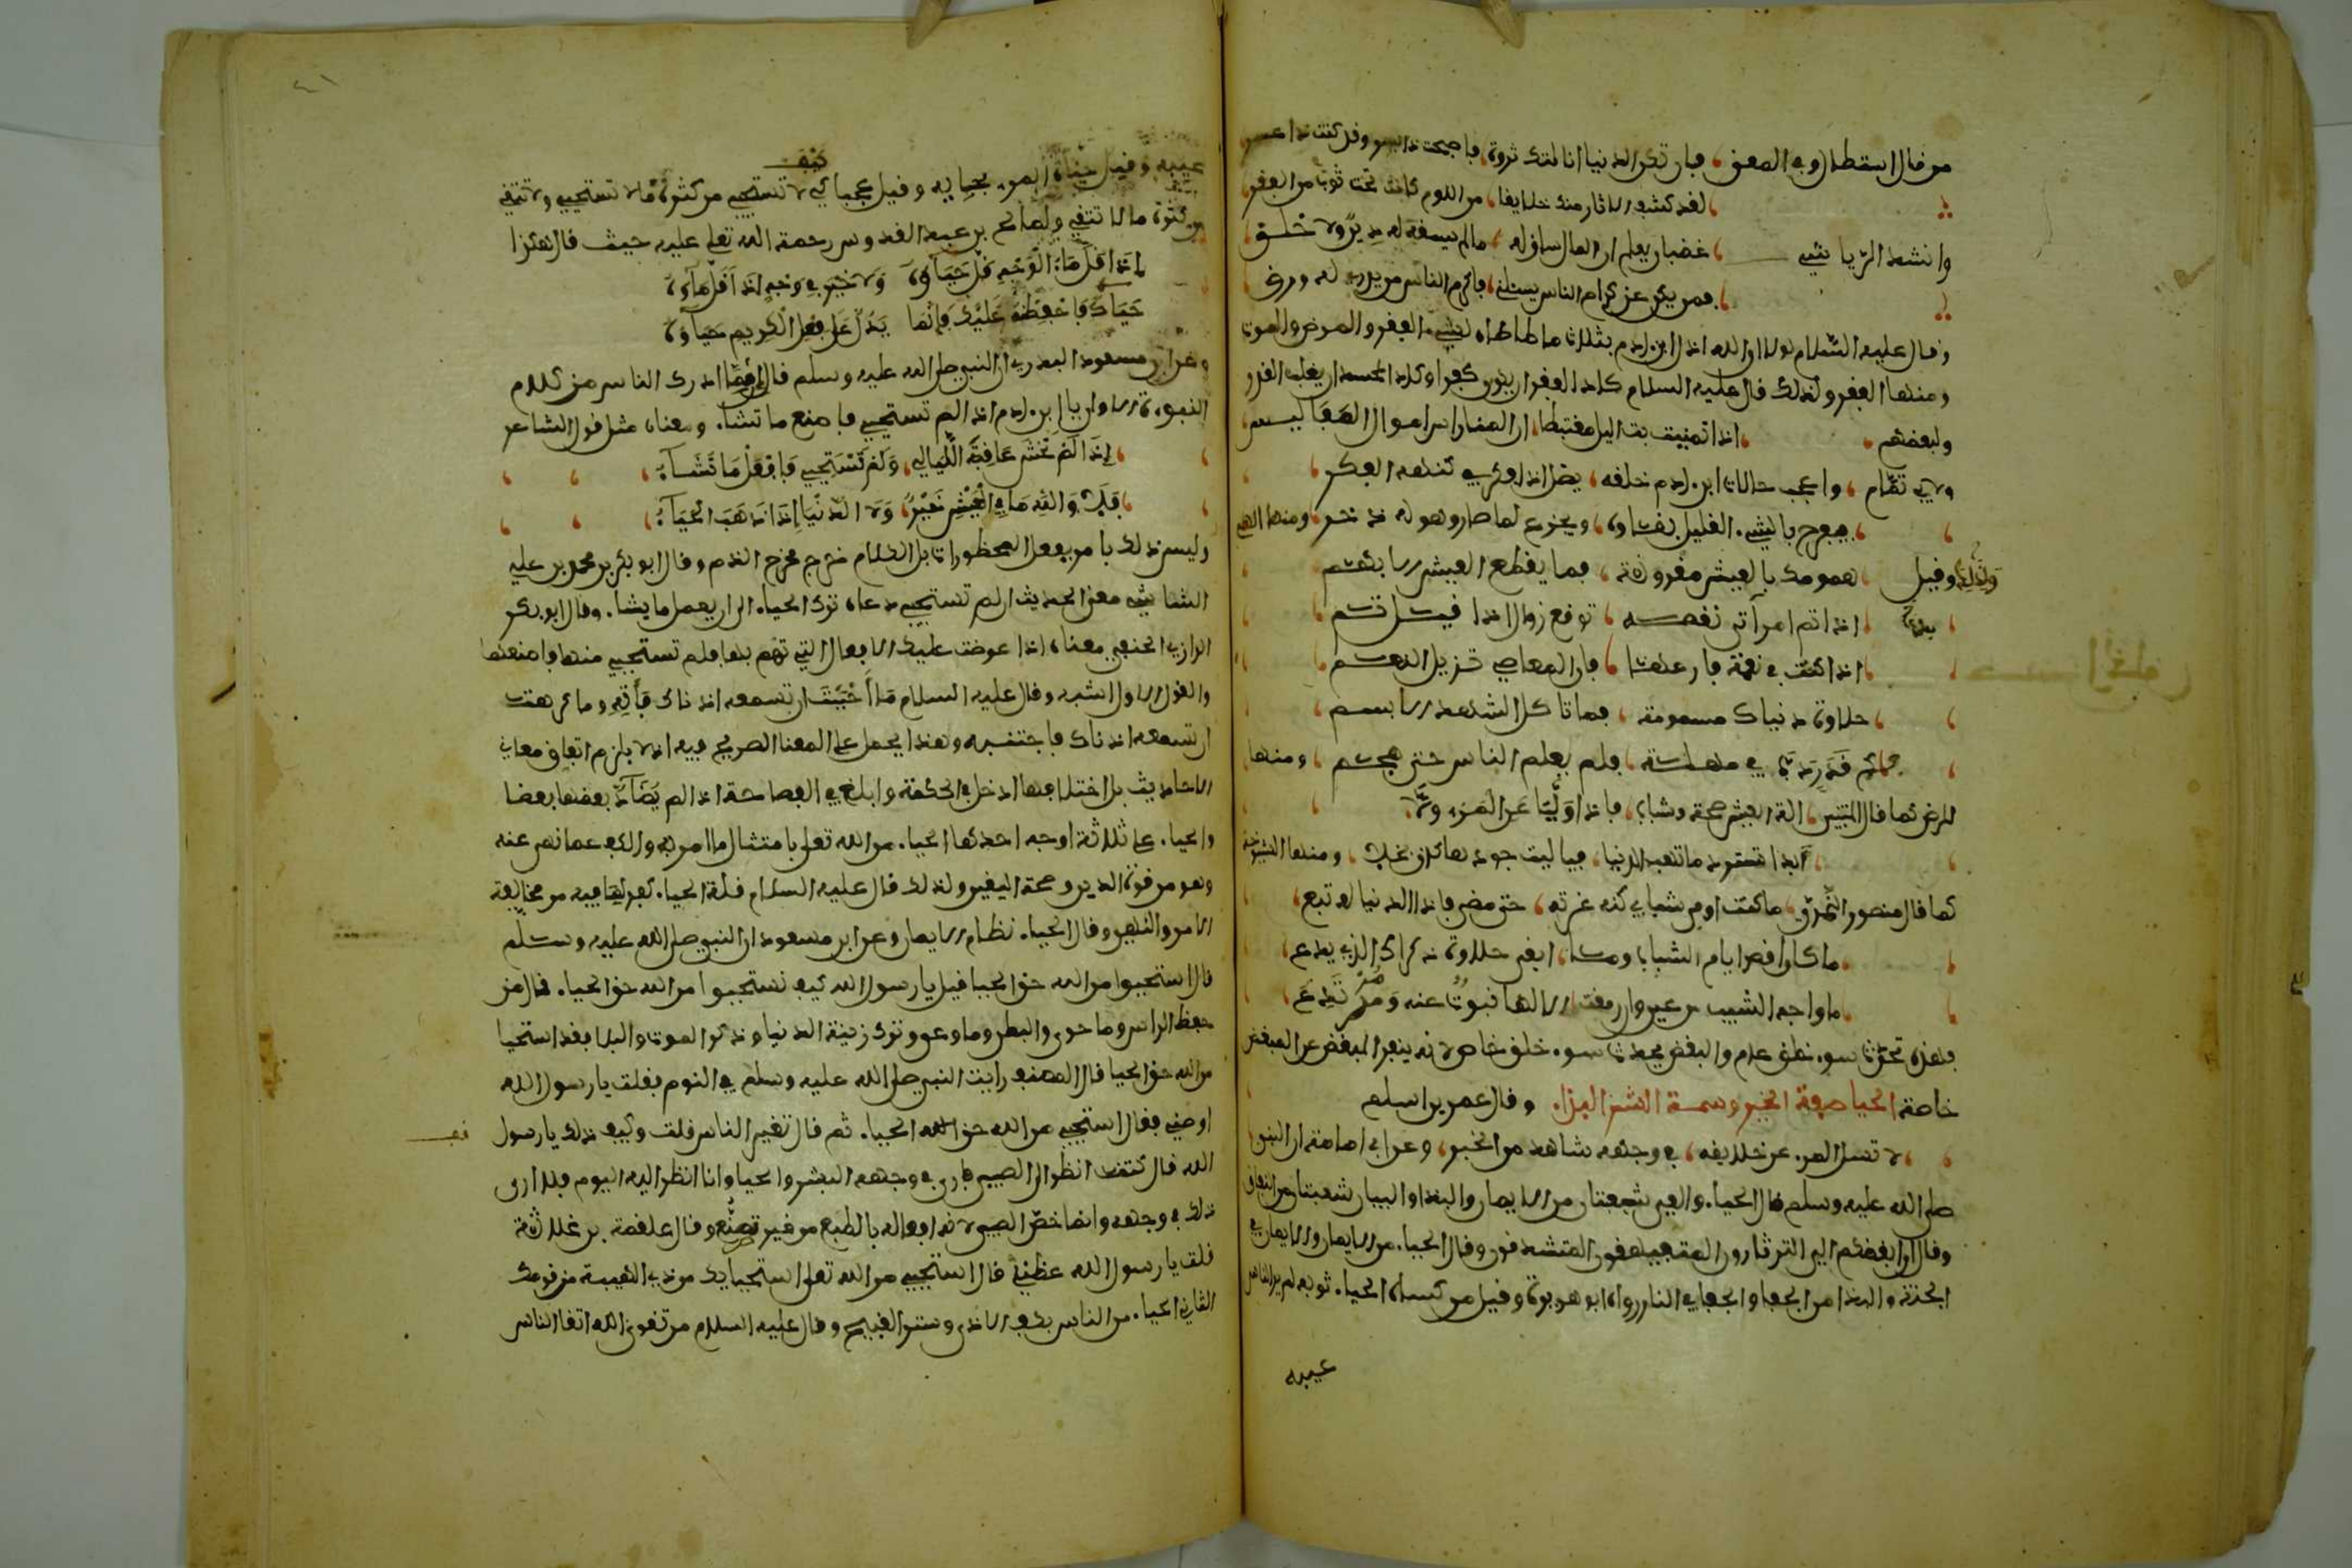 من قال استطال وفي المعنى فإن تكن الدنيا أنالتك ثروة فأصبحت ذا يسر وقد كنت ذا عسر
لقد كشف الاثار منك خلايقا من اللوم كانت تحت ثوب من الفقر
وانشد الرياشي غضبان يعلم ان المال ساق له ما لم يسقه له دين ولا خلق
فمن يكن عن كرام الناس يسئلني فاكرم الناس من
وقال عليه السلام لولا ان الله اذل ابن ادم بثلاث ما طاطاه لشيء الفقر والمرض والموت
ومنها الفقر ولذلك قال عليه السلام كاد الفقر ان يكون كفرا وكاد الحسد ان يغلب القدر
ولبعضهم اذا تمنيت بت اليل مغتبطا ان المنا راس اموال المفاليس
ولابي تمام واعجب حالات ابن ادم خلفه يضل اذا فكرت في كنهه الفكر
فيفرح بالشيء القليل بقاوه ويجزع لما صار وهو له ذخر ومنها الهم
ولذلك وقيل همومك بالعيش مقرونة فما يقطع العيش الا بهم
اذا تم امر اتى نقصه توقع زوالا اذا قيل تم
اذا كنت في نعمة فارعها فان المعاصي تزيل النعم
حلاوة دنياك مسمومة فما تاكل الشهد الا بسم
فكم قدر دب في مهلة فلم يعلم الناس حتى هجم ومنها
المرض كما قال المتنبي الة العيش صحة وشباب فاذا وليا عن المرء ولى
ابدا تسترد ما تهب الدنيا فيا ليت جودها كان بخلا ومنها الشيوخة
كما قال منصور النمري ما كنت اوفي شبابي كنه غرته حتى مضى فاذا الدنيا له تبع
ما كان اقصر ايام الشباب وما ابقى حلاوة ذكراه الذي يدع
ما واجه الشيب من عين وان رمقت الا لها نبوة عنه ومرتدع
فهذه تحدث سوء خلق عام والبغض يحدث سوء خلق خاص لانه ينفر المبغض عن المبغض
خاصة الحيا صفة الخير وسمة الشر البذا وقال عمر بن اسلم
لا تسل المرء عن خلايقه في وجهه شاهد من الخبر وعن ابي امامة ان النبي
صلى الله عليه وسلم قال الحياء والعي شعبتان من الايمان والبذا والبيان شعبتان من النفاق
وقال ان ابغضكم الي الثرثارون المتفيهقون المتشدقون وقال الحياء من الايمان والايمان في
الجنة والبذا من الجفا والجفا في النار رواه ابو هريرة وقيل من كساه الحياء ثوبه لم ير الناس
عيبه
عيبه وقيل حياة المرء بحيايه وقيل عجبا كيف لا تستحيي من كثرة ما لا تستحيي ولا تتقي
من كثرة ما لا تتقي ولصالح بن عبد القدوس رحمة الله تعلى عليه حيث قال هكذا
إذا قل ماء الوجه قل حياؤه ولا خير في وجه اذا قل ماؤه
حياءك فاحفظه عليك فإنما يدل على فعل الكريم حياؤه
وعن ابن مسعود البدري ان النبي صلى الله عليه وسلم قال ان مما ادرك الناس من كلام
النبوءة الاولى يا ابن ادم اذا لم تستحيي فاصنع ما تشاء ومعناه مثل قول الشاعر
إذا لم تخش عاقبة الليالي ولم تستحيي فافعل ما تشاء
فلا والله ما في العيش خير ولا الدنيا إذا ذهب الحياء
وليس ذلك بامر بفعل المحظورات بل الكلام خرج مخرج الذم وقال ابو بكر بن محمد بن علي
الشاشي معنى الحديث ان لم تستحيي دعاه ترك الحياء الى ان يعمل ما يشاء وقال ابو بكر
الرازي الحنفي معناه اذا عرضت عليك الافعال التي تهم بها فلم تستحيي منها فاصنعها
والقول الاول اشبه وقال عليه السلام ما أحببت ان تسمعه اذناك فأته وما كرهت
ان تسمعه اذناك فاجتنبه وهذا يحمل على المعنا الصريح فيه اذ لا يلزم اتفاق معاني
الاحاديث بل اختلافها ادخل في الحكمة وابلغ في الفصاحة اذا لم يضاد بعضها بعضا
والحياء على ثلاثة اوجه احدها الحياء من الله تعلى بامتثال ما امر به والكف عما نهى عنه
وهو من قوة الدين وصحة اليقين ولذلك قال عليه السلام قلة الحياء كفر لما فيه من مخالفة
الامر والنهي وقال الحياء نظام الايمان وعن ابن مسعود ان النبي صلى الله عليه وسلم
قال استحيوا من الله حق الحيا قيل يا رسول الله كيف نستحيوا من الله حق الحياء قال من
حفظ الراس وما حوى والبطن وما وعى وترك زينة الدنيا وذكر الموت والبلا فقد استحيا
من الله حق الحيا قال المصنف رايت النبي صلى الله عليه وسلم في النوم فقلت يا رسول الله
اوصني فقال استحيي من الله حق الحياء ثم قال تغير الناس قلت وكيف ذلك يا رسول
الله قال كنت انظر الى الصبي فارى في وجهه البشر والحيا وانا انظر اليه اليوم فلا ارى
ذلك في وجهه وانما خص الصبي لانه افعاله بالطبع من غير تصنع وقال علقمة بن علاثة
قلت يا رسول الله عظني قال استحيي من الله تعلى استحياءك من ذي الهيبة من قومك
الثاني الحياء من الناس بكف الاذى وستر القبيح وقال عليه السلام من تقوى الله اتقا الناس